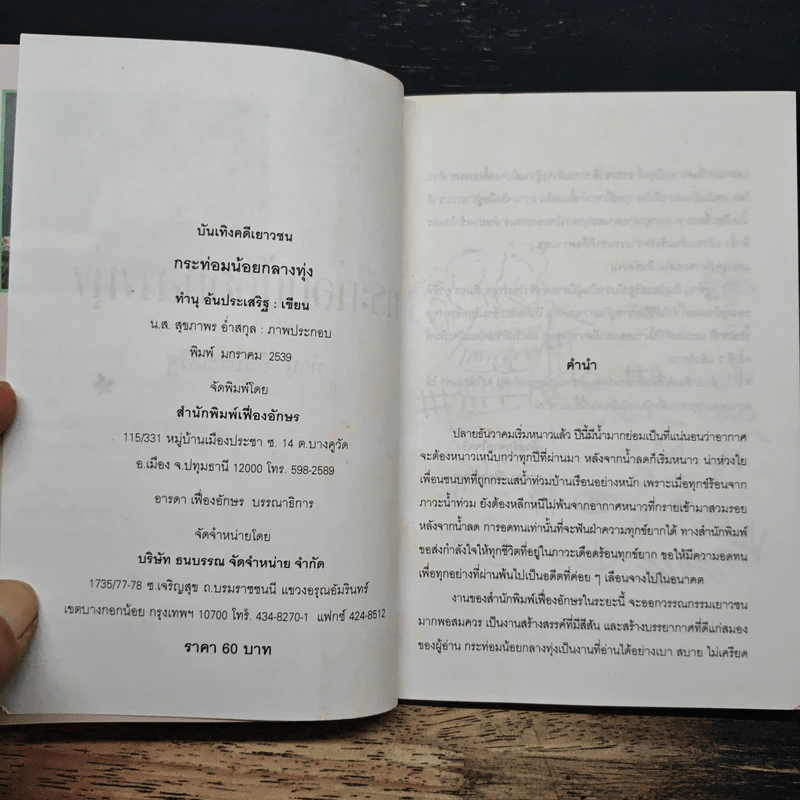 บันเทิงคดีเยาวชน
กระท่อมน้อยกลางทุ่ง
ทำนุ อันประเสริฐ : เขียน
น.ส. สุขภาพร อ่ำสกุล : ภาพประกอบ
พิมพ์ มกราคม 2539
จัดพิมพ์โดย
สำนักพิมพ์เฟื่องอักษร
115/331 หมู่บ้านเมืองประชา ซ. 14 ต.บางคูวัด
อ.เมือง จ.ปทุมธานี 12000 โทร. 598-2589
อารดา เฟื่องอักษร บรรณาธิการ
จัดจำหน่ายโดย
บริษัท ธนบรรณ จัดจำหน่าย จำกัด
1735/77-78 ซ.เจริญสุข ถ.บรมราชชนนี แขวงอรุณอัมรินทร์
เขตบางกอกน้อย กรุงเทพฯ 10700 โทร์. 434-8270-1 แฟกซ์ 424-8512
ราคา 60 บาท
คำนำ
ปลายธันวาคมเริ่มหนาวแล้ว ปีนี้มีน้ำมากย่อมเป็นที่แน่นอนว่าอากาศ
จะต้องหนาวเหน็บกว่าทุกปีที่ผ่านมา หลังจากน้ำลดก็เริ่มหนาว น่าห่วงใย
เพื่อนชนบทที่ถูกกระแสน้ำท่วมบ้านเรือนอย่างหนัก เพราะเมื่อทุกข์ร้อนจาก
ภาวะน้ำท่วม ยังต้องหลีกหนีไม่พ้นจากอากาศหนาวที่กรายเข้ามาสวมรอย
หลังจากน้ำลด การอดทนเท่านั้นที่จะฟันฝ่าความทุกข์ยากได้ ทางสำนักพิมพ์
ขอส่งกำลังใจให้ทุกชีวิตที่อยู่ในภาวะเดือดร้อนทุกข์ยาก ขอให้มีความอดทน
เพื่อทุกอย่างที่ผ่านพ้นไปเป็นอดีตที่ค่อย ๆ เลือนจางไปในอนาคต
งานของสำนักพิมพ์เฟื่องอักษรในระยะนี้ จะออกวรรณกรรมเยาวชน
มากพอสมควร เป็นงานสร้างสรรค์ที่มีสีสัน และสร้างบรรยากาศที่ดีแก่สมอง
ของผู้อ่าน กระท่อมน้อยกลางทุ่งเป็นงานที่อ่านได้อย่างเบา สบาย ไม่เครียด